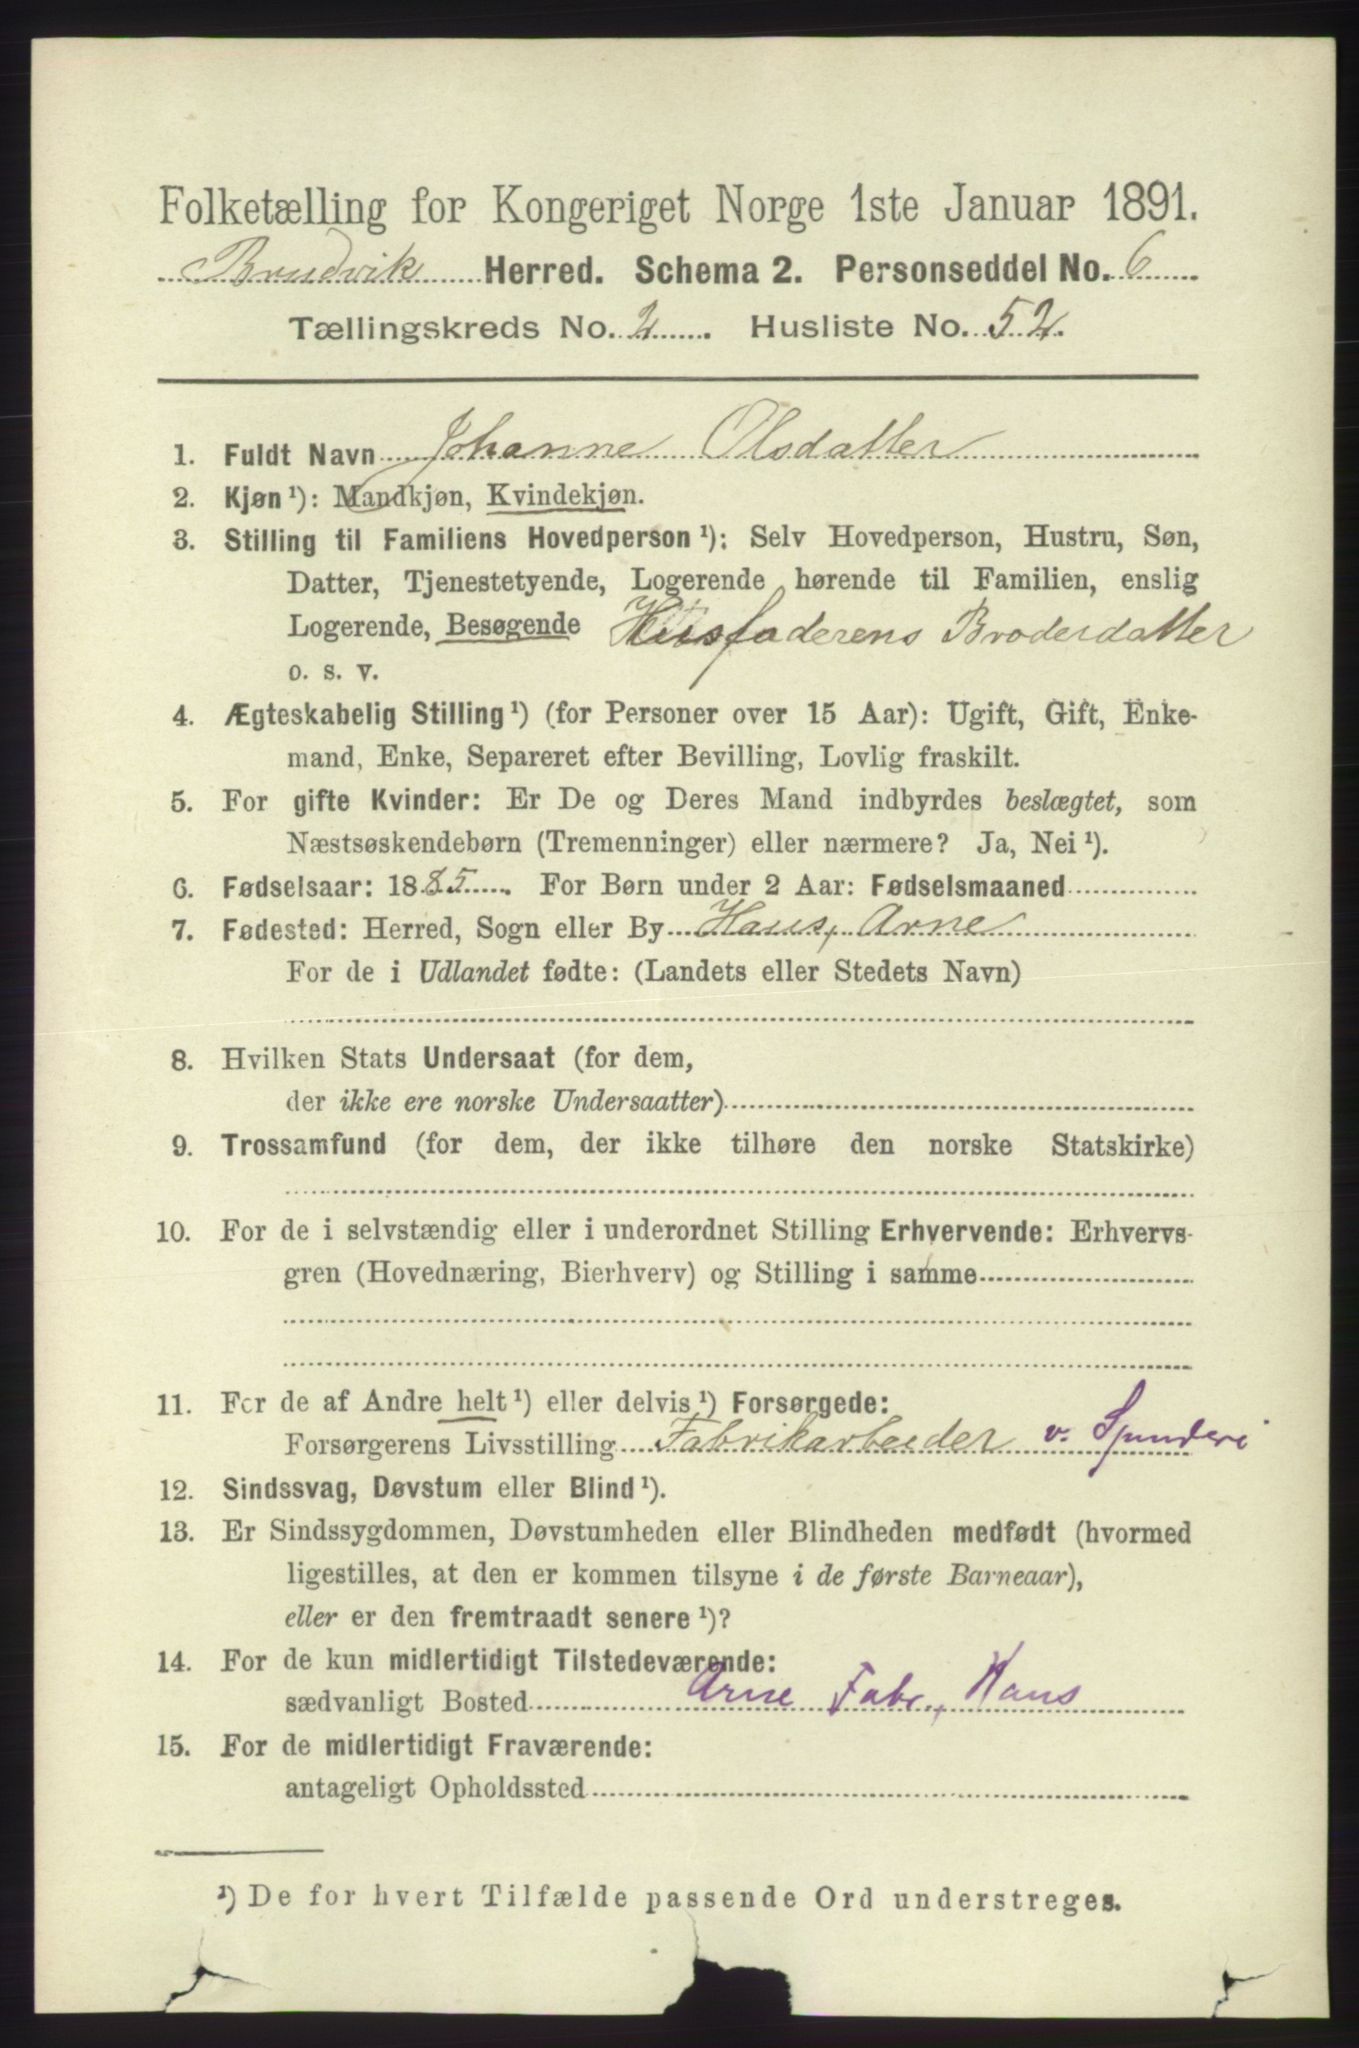 Folketælling for Kongeriget Norge 1ste Januar 1891.
Brudvik Herred. Schema 2. Personseddel No. 6
Tællingskreds No. 2. Husliste No. 52.
1. Fuldt Navn Johanne Olsdatter
2. Kjøn¹): Mandkjøn, Kvindekjøn.
3. Stilling til Familiens Hovedperson¹): Selv Hovedperson, Hustru, Søn,
Datter, Tjenestetyende, Logerende hørende til Familien, enslig
Logerende, Besøgende Husfaderens Broderdatter
o. s. v.
4. Ægteskabelig Stilling¹) (for Personer over 15 Aar): Ugift, Gift, Enke-
mand, Enke, Separeret efter Bevilling, Lovlig fraskilt.
5. For gifte Kvinder: Er De og Deres Mand indbyrdes beslægtet, som
Næstsøskendebørn (Tremenninger) eller nærmere? Ja, Nei¹).
6. Fødselsaar: 1885. For Børn under 2 Aar: Fødselsmaaned
7. Fødested: Herred, Sogn eller By Haus, Arne
For de i Udlandet fødte: (Landets eller Stedets Navn)
8. Hvilken Stats Undersaat (for dem,
der ikke ere norske Undersaatter)
9. Trossamfund (for dem, der ikke tilhøre den norske Statskirke)
10. For de i selvstændig eller i underordnet Stilling Erhvervende: Erhvervs-
gren (Hovednæring, Bierhverv) og Stilling i samme
11. For de af Andre helt¹) eller delvis¹) Forsørgede:
Forsørgerens Livsstilling Fabrikarbeider v. Spinderi
12. Sindssvag, Døvstum eller Blind¹).
13. Er Sindssygdommen, Døvstumheden eller Blindheden medfødt (hvormed
ligestilles, at den er kommen tilsyne i de første Barneaar),
eller er den fremtraadt senere¹)?
14. For de kun midlertidigt Tilstedeværende:
sædvanligt Bosted Arne Fabr., Haus
15. For de midlertidigt Fraværende:
antageligt Opholdssted
¹) De for hvert Tilfælde passende Ord understreges.